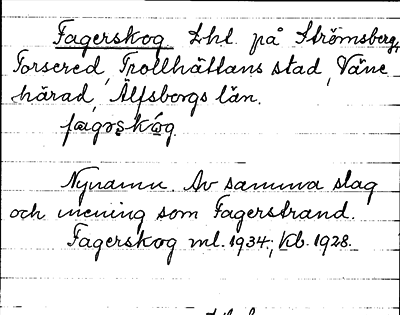 Fagerskog Lht. på Strömsberg,
Torsered, Trollhättans stad, Väne
härad, Älfsborgs län.
fagəʂkóg.
Nynamn. Av samma slag
och mening som Fagerstrand.
Fagerskog ml. 1934; kb. 1928.